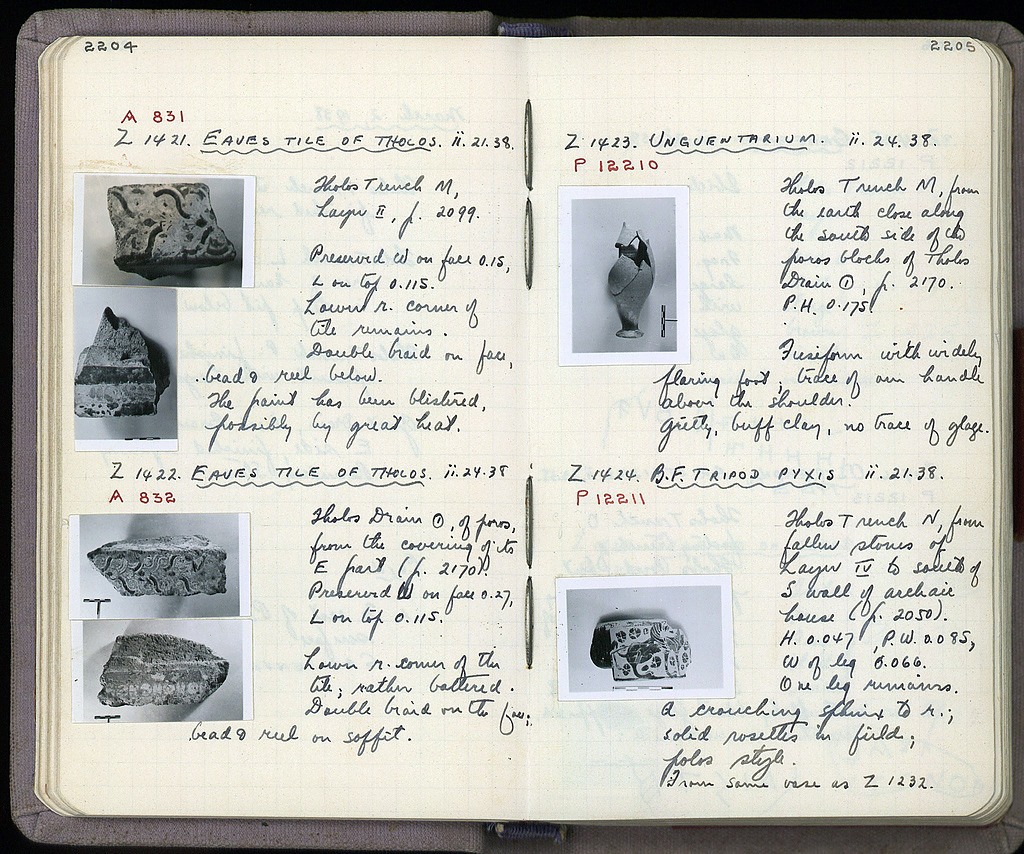 2204
A 831
Z 1421. EAVES TILE OF THOLOS. ii.21.38.
Tholos Trench M,
Layer II, p. 2099.
Preserved W on face 0.15,
L on top 0.115.
Lower r. corner of
tile remains.
Double braid on face,
bead & reel below.
The paint has been blistered,
possibly by great heat.
Z 1422. EAVES TILE OF THOLOS. ii.24.38
A 832
Tholos Drain ①, of poros,
from the covering of its
E part (p. 2170).
Preserved W on face 0.27,
L on top 0.115.
Lower r. corner of the
tile; rather battered.
Double braid on the face;
bead & reel on soffit.
2205
Z 1423. UNGUENTARIUM. ii.24.38.
P 12210
Tholos Trench M, from
the earth close along
the south side of the
poros blocks of Tholos
Drain ①, p. 2170.
P.H. 0.175.
Fusiform with widely
flaring foot; trace of one handle
above the shoulder.
Gritty, buff clay, no trace of glaze.
Z 1424. B.F. TRIPOD PYXIS ii.21.38.
P 12211
Tholos Trench N, from
fallen stones of
Layer IV to south of
S wall of archaic
house (p. 2050).
H. 0.047, P.W. 0.085,
W of leg 0.066.
One leg remains.
A crouching sphinx to r.;
solid rosettes in field;
polos style.
From same vase as Z 1232.